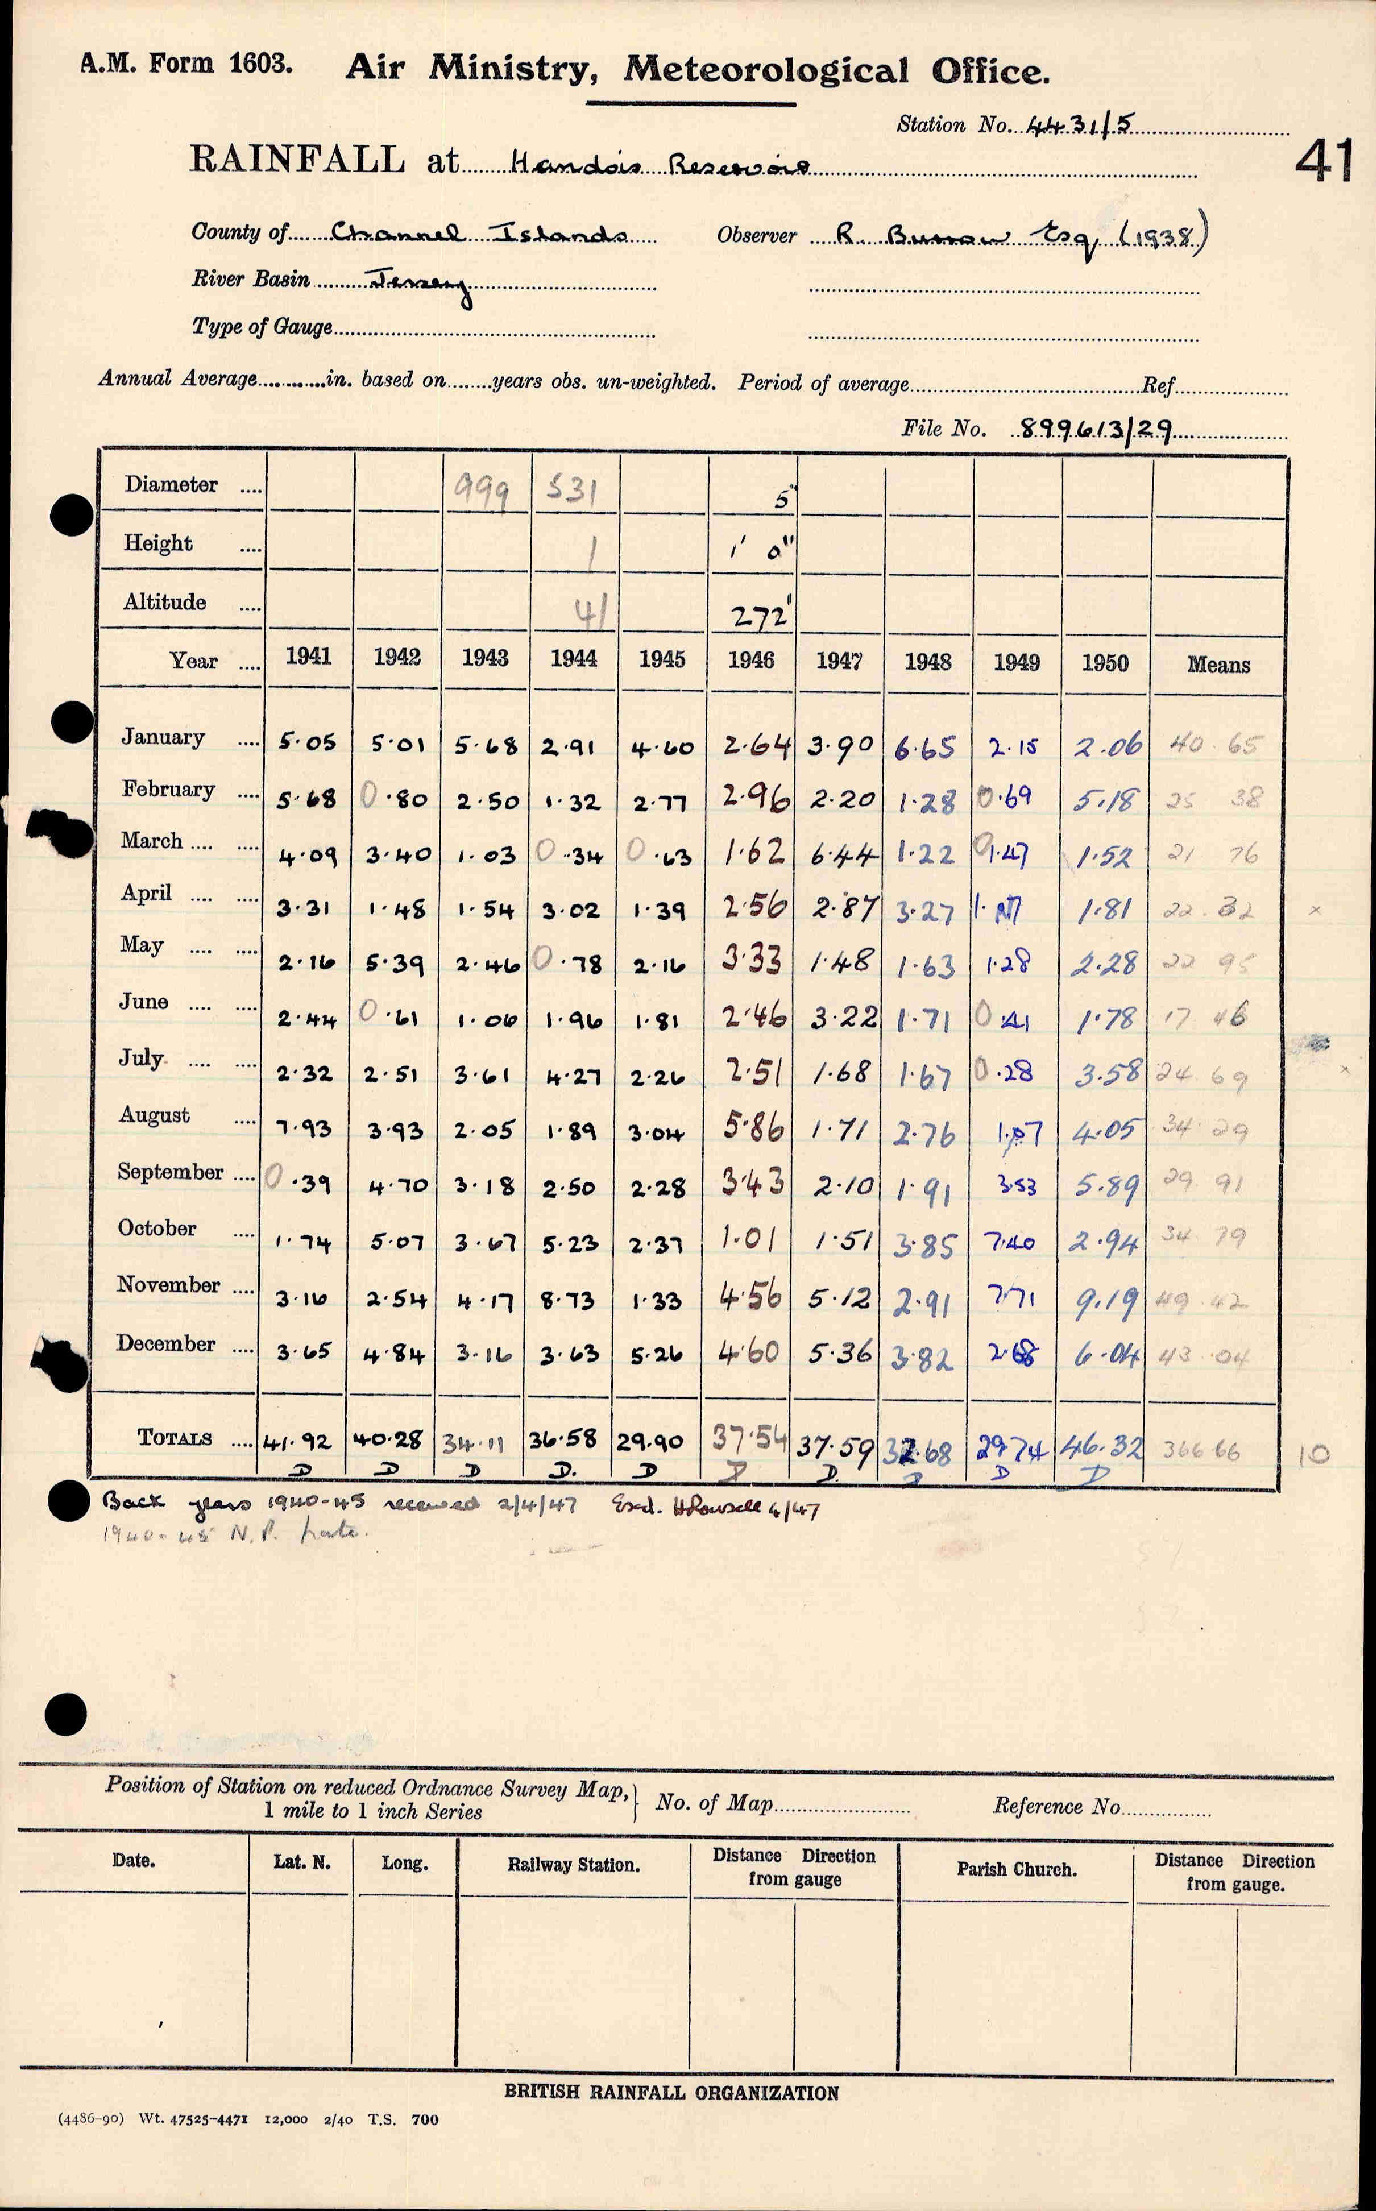 A.M. Form 1603. Air Ministry, Meteorological Office.
Station No. 4431/5
41
RAINFALL at Handois Reservoir
County of Channel Islands Observer R. Burrow Esq, (1938)
River Basin Jersey
Type of Gauge
Annual Average in. based on years obs. un-weighted. Period of average Ref
File No. 899613/29
Diameter 999 531 5"
Height 1 1' 0"
Altitude 41 272'
Year 1941 1942 1943 1944 1945 1946 1947 1948 1949 1950 Means
January 5.05 5.01 5.68 2.91 4.60 2.64 3.90 6.65 2.15 2.06 40.65
February 5.68 0.80 2.50 1.32 2.77 2.96 2.20 1.28 0.69 5.18 25 38
March 4.09 3.40 1.03 0.34 0.63 1.62 6.44 1.22 1.47 1.52 21 76
April 3.31 1.48 1.54 3.02 1.39 2.56 2.87 3.27 1.07 1.81 22.32 x
May 2.16 5.39 2.46 0.78 2.16 3.33 1.48 1.63 1.28 2.28 22 95
June 2.44 0.61 1.06 1.96 1.81 2.46 3.22 1.71 0.41 1.78 17 46
July 2.32 2.51 3.61 4.27 2.26 2.51 1.68 1.67 0.28 3.58 24 69 x
August 7.93 3.93 2.05 1.89 3.04 5.86 1.71 2.76 1.07 4.05 34.29
September 0.39 4.70 3.18 2.50 2.28 3.43 2.10 1.91 3.53 5.89 29 91
October 1.74 5.07 3.67 5.23 2.37 1.01 1.51 3.85 7.40 2.94 34 79
November 3.16 2.54 4.17 8.73 1.33 4.56 5.12 2.91 7.71 9.19 49.42
December 3.65 4.84 3.16 3.63 5.26 4.60 5.36 3.82 2.68 6.04 43.04
TOTALS 41.92 40.28 34.11 36.58 29.90 37.54 37.59 32.68 29.74 46.32 366 66 10
D D D D. D D D. D D D
Back years 1940-45 received 2/4/47 Exd. H Rowsell 4/47
1940-45 N.P. late.
Position of Station on reduced Ordnance Survey Map,
1 mile to 1 inch Series No. of Map Reference No
Date. Lat. N. Long. Railway Station. Distance Direction from gauge Parish Church. Distance Direction from gauge.
BRITISH RAINFALL ORGANIZATION
(4486-90) Wt. 47525-4471 12,000 2/40 T.S. 700